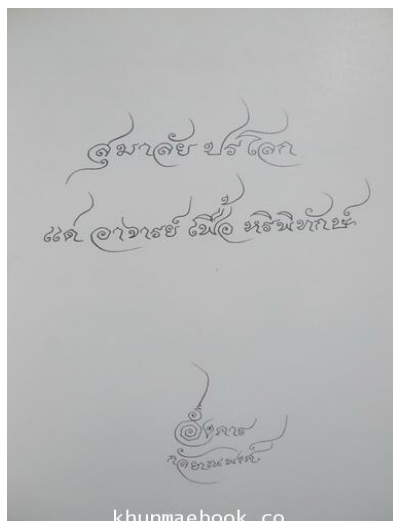 สุมาลัย ปรโลก
แด่ อาจารย์ เฟื้อ หริพิทักษ์
อังคาร
กัลยาณพงศ์
khunmaebook.co